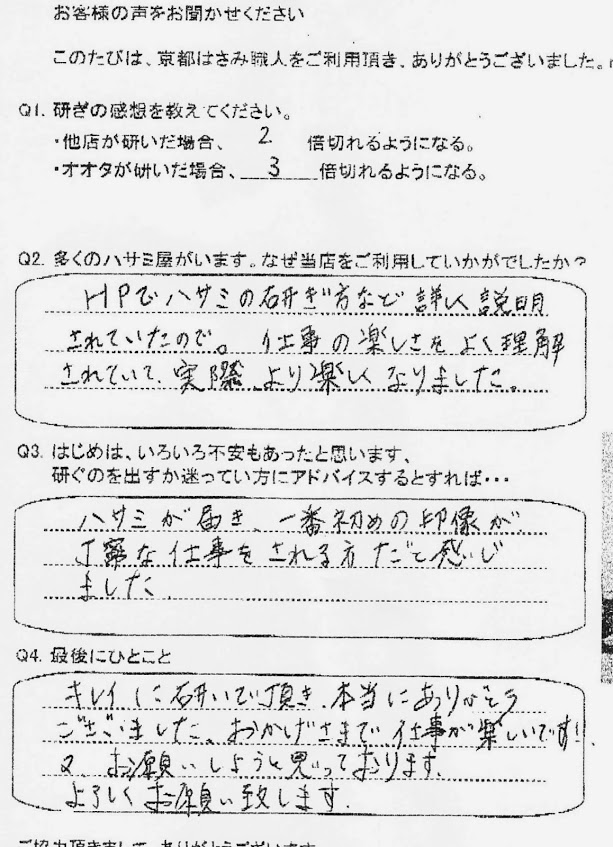 お客様の声をお聞かせください
このたびは、京都はさみ職人をご利用頂き、ありがとうございました。
Q1. 研ぎの感想を教えてください。
・他店が研いだ場合、 2 倍切れるようになる。
・オオタが研いだ場合、 3 倍切れるようになる。
Q2. 多くのハサミ屋がいます。なぜ当店をご利用していかがでしたか?
HPでハサミの研ぎ方など詳しく説明
されていたので。仕事の楽しさをよく理解
されていて、実際より楽しくなりました。
Q3. はじめは、いろいろ不安もあったと思います、
研ぐのを出すか迷ってい方にアドバイスするとすれば・・・
ハサミが届き、一番初めの印像が
丁寧な仕事をされる方だと感いじ
ました.
Q4. 最後にひとこと
キレイに研いで頂き、本当にありがとう
ございました、おかげさまで、仕事が楽しいです!!
又、お願いしようと思っております.
よろしくお願い致します.
ご協力頂きまして、ありがとうございます